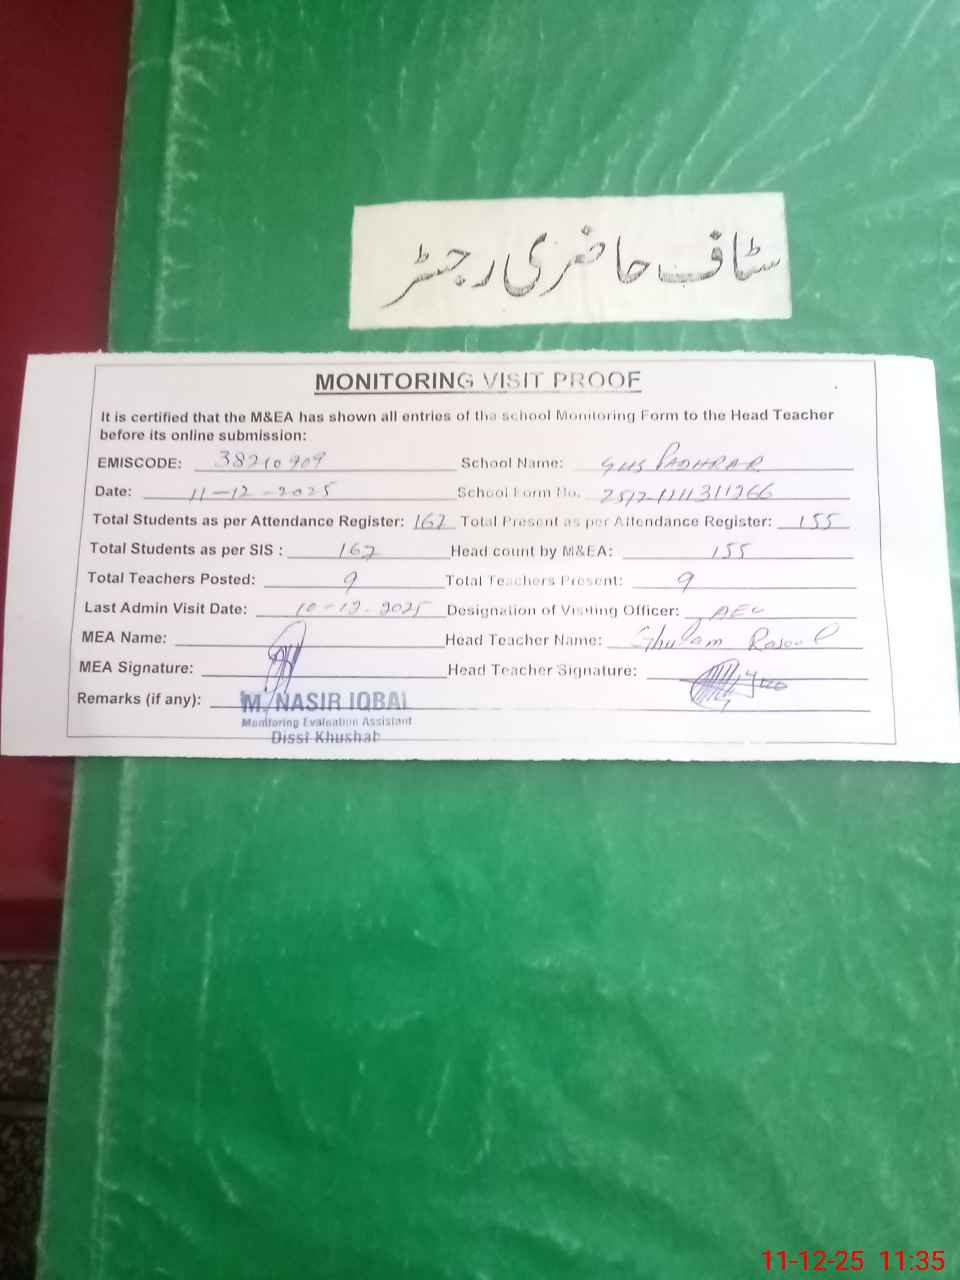 سٹاف حاضری رجسٹر
MONITORING VISIT PROOF
It is certified that the M&EA has shown all entries of the school Monitoring Form to the Head Teacher
before its online submission:
EMISCODE: 38210909 School Name: GHS PADHRAR
Date: 11-12-2025 School Form No.
Total Students as per Attendance Register: 162 Total Present as per Attendance Register: 155
Total Students as per SIS : 162 Head count by M&EA: 155
Total Teachers Posted: 9 Total Teachers Present: 9
Last Admin Visit Date: 10-12-2025 Designation of Visiting Officer: AEO
MEA Name: Head Teacher Name: Ghulam Rasool
MEA Signature: Head Teacher Signature:
Remarks (if any): M. NASIR IQBAL
Monitoring Evaluation Assistant
Disst Khushab
11-12-25 11:35